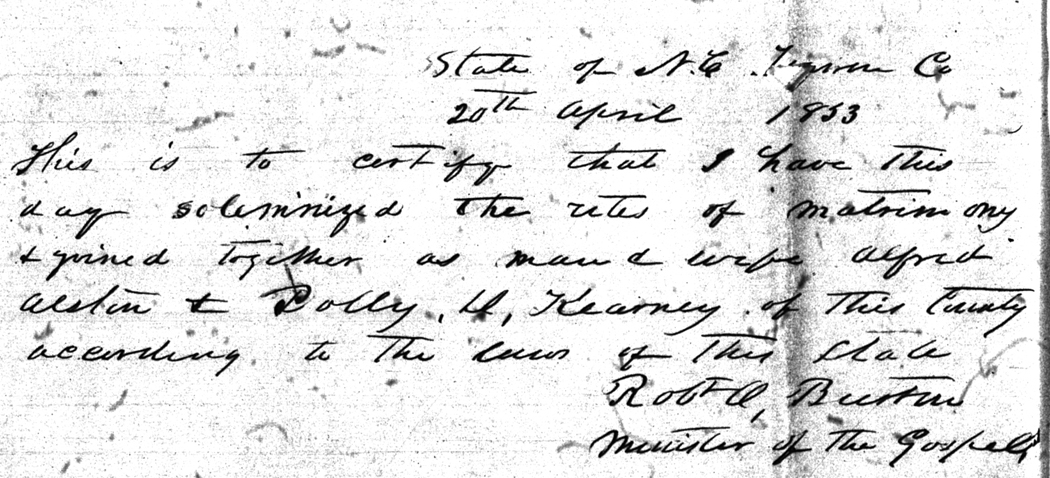 State of N.C. Co
20th April 1853
This is to certify that I have this
day solemnized the rites of matrimony
& joined together as man & wife Alfred
Alston & Polly. A, Kearney of this County
according to the laws of this State
Robt O, Burton
Minister of the Gospel